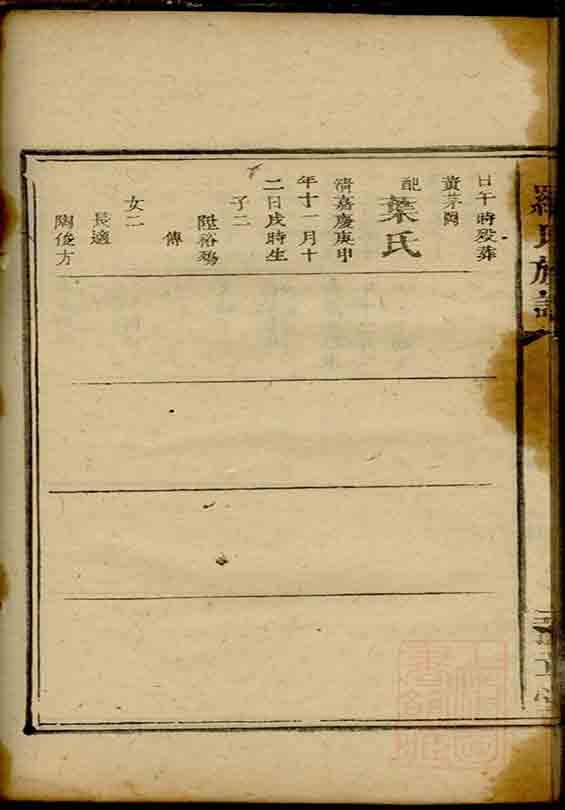 日午時歿葬
黃茅岡
配葉氏
清嘉慶庚申
年十一月十
二日戌時生
子二
陞裕鵷
傳
女二
長適
陶俊方
羅氏族譜